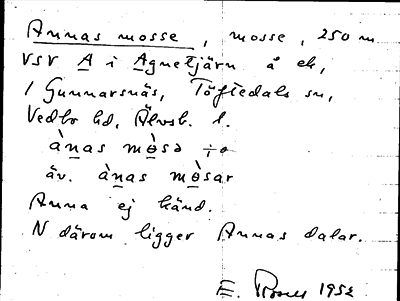 Annas mosse, mosse, 250 m
VSV A i Agnetjärn å ek,
1 Gunnarsnäs, Töftedals sn,
Vedbo hd, Älvsb. l.
ànas mòsə ÷ə
äv. ànas mòsar
Anna ej känd.
N därom ligger Annas dalar.
E. 1952